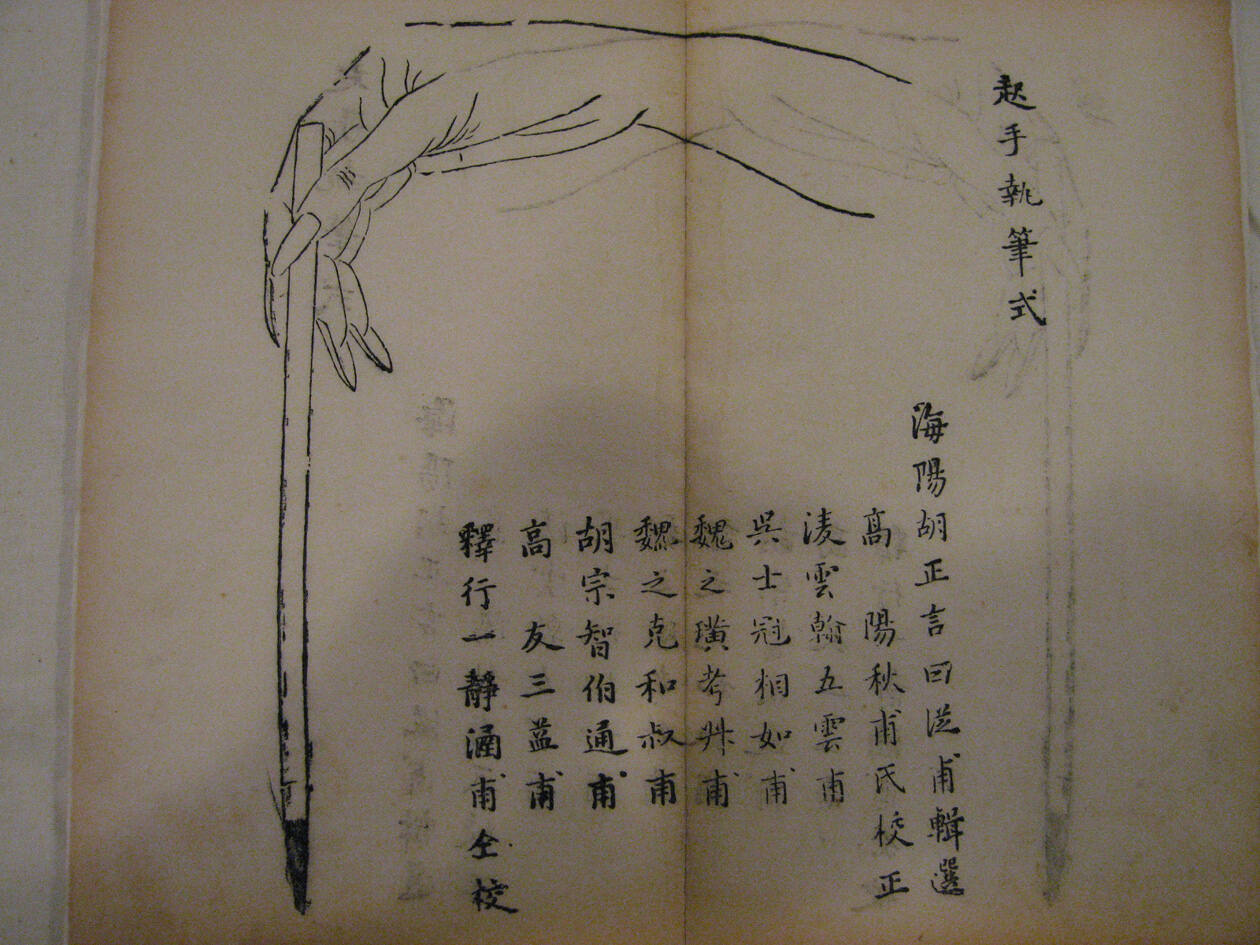 起手執筆式
海陽胡正言曰從甫輯選
高 陽秋甫氏校正
凌雲翰五雲甫
吳士冠相如甫
魏之璜考叔甫
魏之克和叔甫
胡宗智伯通甫
高 友三益甫
釋行一靜涵甫仝校